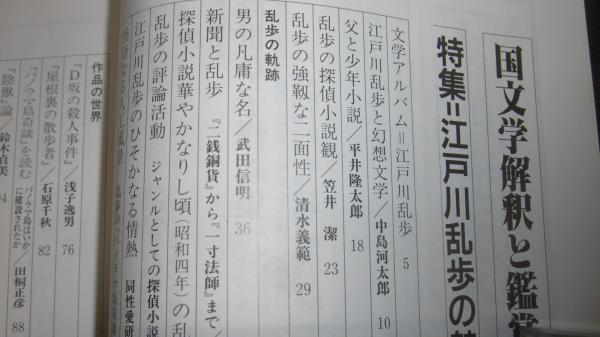 国文学解釈と鑑賞
特集=江戸川乱歩の
文学アルバム=江戸川乱歩 5
江戸川乱歩と幻想文学/中島河太郎 10
父と少年小説/平井隆太郎 18
乱歩の探偵小説観/笠井 潔 23
乱歩の強靱な二面性/清水義範 29
乱歩の軌跡
男の凡庸な名/武田信明 36
新聞と乱歩 『二銭銅貨』から『一寸法師』まで/
探偵小説華やかなりし頃(昭和四年)の乱
乱歩の評論活動 ジャンルとしての探偵小説
江戸川乱歩のひそかなる情熱 同性愛研
作品の世界
『D坂の殺人事件』/浅子逸男 76
『屋根裏の散歩者』/石原千秋 82
『パノラマ島奇談』を読む パノラマ島はいかに建設されたか/田桐正彦 88
『陰獣』論/鈴木貞美 94